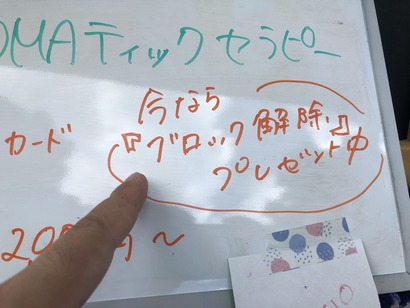 OMAティックセラピー
今なら
カード
『ブロック解除!』
プレゼント中
2,0
円〜